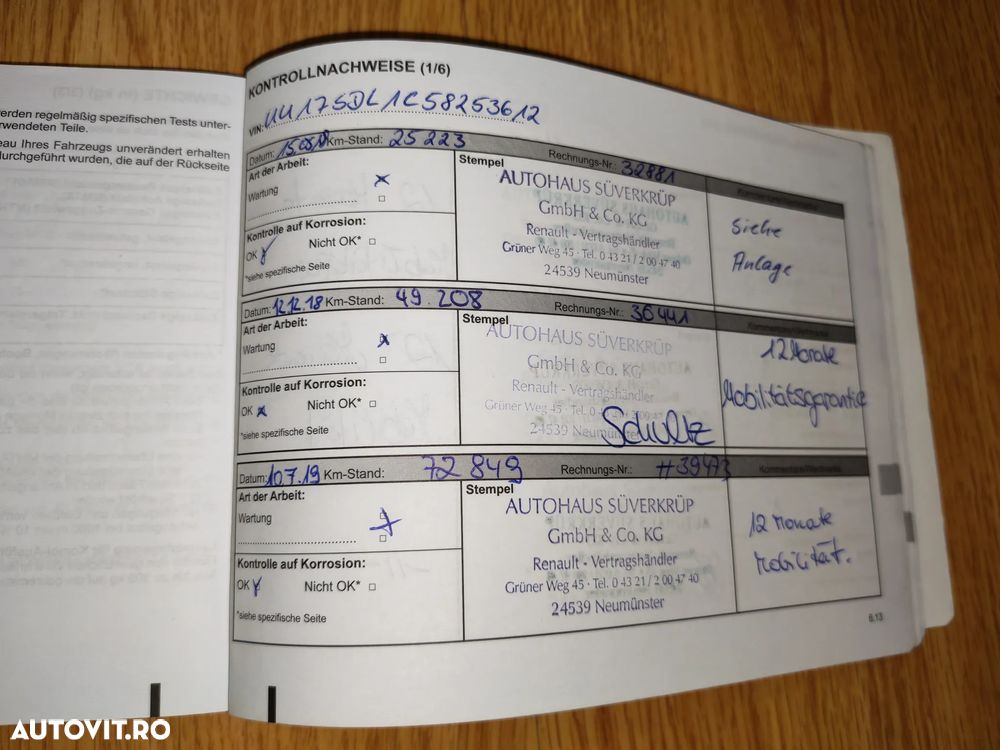 erden regelmäßig spezifischen Tests unter-
rwendeten Teile.
eau Ihres Fahrzeugs unverändert erhalten
durchgeführt wurden, die auf der Rückseite
KONTROLLNACHWEISE (1/6)
VIN: UU17SDL1C58253612
Datum: 15.05.18 Km-Stand: 25 223 Rechnungs-Nr.: 32881
Art der Arbeit:
Wartung x
Kontrolle auf Korrosion:
OK Nicht OK*
*siehe spezifische Seite
Stempel
AUTOHAUS SÜVERKRÜP
GmbH & Co. KG
Renault - Vertragshändler
Grüner Weg 45 · Tel. 0 43 21 / 2 00 47 40
24539 Neumünster
Siehe
Anlage
Datum: 12.12.18 Km-Stand: 49.208 Rechnungs-Nr.: 36441
Art der Arbeit:
Wartung x
Kontrolle auf Korrosion:
OK x Nicht OK*
*siehe spezifische Seite
Stempel
AUTOHAUS SÜVERKRÜP
GmbH & Co. KG
Renault - Vertragshändler
Grüner Weg 45 · Tel. 0 43 21 / 2 00 47 40
24539 Neumünster
Schultz
12 Monate
Mobilitätsgarantie
Datum: 10.7.19 Km-Stand: 72 849 Rechnungs-Nr.: #39473 Kommentare/Vermerke
Art der Arbeit:
Wartung
Kontrolle auf Korrosion:
OK Nicht OK*
*siehe spezifische Seite
Stempel
AUTOHAUS SÜVERKRÜP
GmbH & Co. KG
Renault - Vertragshändler
Grüner Weg 45 · Tel. 0 43 21 / 2 00 47 40
24539 Neumünster
12 Monate
Mobilität.
6.13
AUTOVIT.RO